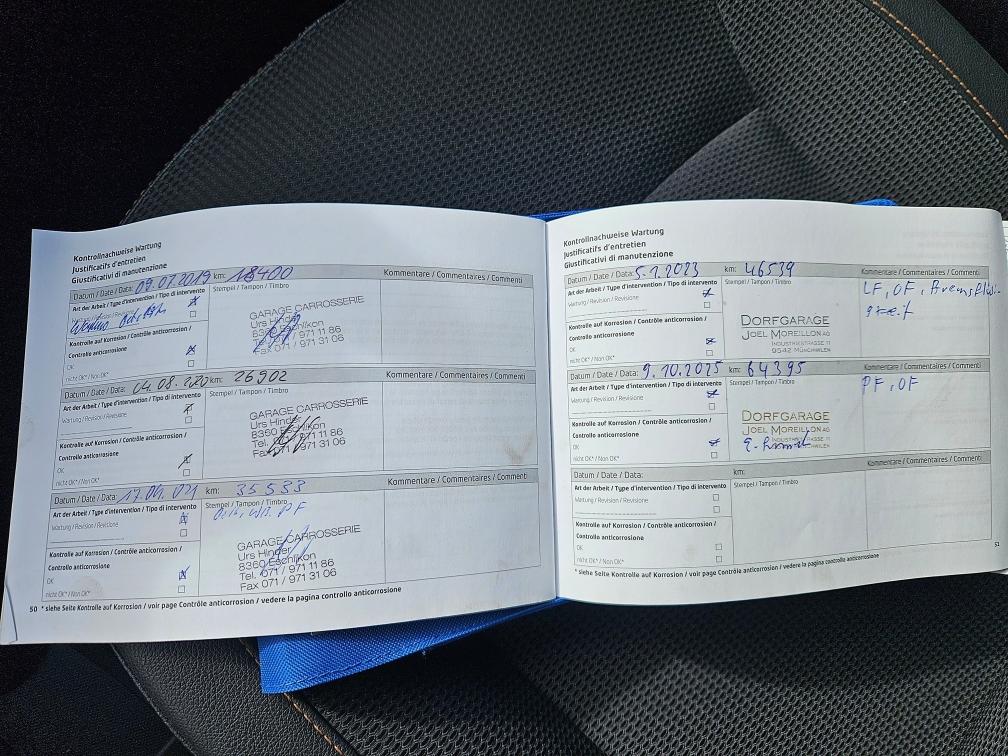 Kontrollnachweise Wartung
Justificatifs d'entretien
Giustificativi di manutenzione
Datum / Date / Data: 09.07.2019 km: 18400
Kommentare / Commentaires / Commenti
Art der Arbeit / Type d'intervention / Tipo di intervento
Stempel / Tampon / Timbro
Kontrolle auf Korrosion / Contrôle anticorrosion /
Controllo anticorrosione
OK
nicht OK* / Non OK*
GARAGE CARROSSERIE
Urs Hinder
8360 Eschlikon
Tel. 071 / 971 11 86
Fax 071 / 971 31 06
Datum / Date / Data: 04.08.2020 km: 26902
Kommentare / Commentaires / Commenti
Art der Arbeit / Type d'intervention / Tipo di intervento
Stempel / Tampon / Timbro
Wartung / Revision / Revisione
Kontrolle auf Korrosion / Contrôle anticorrosion /
Controllo anticorrosione
OK
nicht OK* / Non OK*
GARAGE CARROSSERIE
Urs Hinder
8360 Eschlikon
Tel. 071 / 971 11 86
Fax 071 / 971 31 06
Datum / Date / Data: 17.09.021 km: 35533
Kommentare / Commentaires / Commenti
Art der Arbeit / Type d'intervention / Tipo di intervento
Stempel / Tampon / Timbro
Wartung / Revision / Revisione
PF
Kontrolle auf Korrosion / Contrôle anticorrosion /
Controllo anticorrosione
OK
nicht OK* / Non OK*
GARAGE CARROSSERIE
Urs Hinder
8360 Eschlikon
Tel. 071 / 971 11 86
Fax 071 / 971 31 06
50 * siehe Seite Kontrolle auf Korrosion / voir page Contrôle anticorrosion / vedere la pagina controllo anticorrosione
Kontrollnachweise Wartung
Justificatifs d'entretien
Giustificativi di manutenzione
Datum / Date / Data: 5.1.2023 km: 46539
Kommentare / Commentaires / Commenti
Art der Arbeit / Type d'intervention / Tipo di intervento
Stempel / Tampon / Timbro
LF, OF,
Wartung / Revision / Revisione
Kontrolle auf Korrosion / Contrôle anticorrosion /
Controllo anticorrosione
OK
nicht OK* / Non OK*
DORFGARAGE
JOEL MOREILLON AG
INDUSTRIESTRASSE 11
9542 MÜNCHWILEN
Datum / Date / Data: 9.10.2025 km: 64395
Kommentare / Commentaires / Commenti
Art der Arbeit / Type d'intervention / Tipo di intervento
Stempel / Tampon / Timbro
PF, OF
Wartung / Revision / Revisione
Kontrolle auf Korrosion / Contrôle anticorrosion /
Controllo anticorrosione
OK
nicht OK* / Non OK*
DORFGARAGE
JOEL MOREILLON AG
Datum / Date / Data: km:
Kommentare / Commentaires / Commenti
Art der Arbeit / Type d'intervention / Tipo di intervento
Stempel / Tampon / Timbro
Wartung / Revision / Revisione
Kontrolle auf Korrosion / Contrôle anticorrosion /
Controllo anticorrosione
OK
nicht OK* / Non OK*
* siehe Seite Kontrolle auf Korrosion / voir page Contrôle anticorrosion / vedere la pagina controllo anticorrosione
51